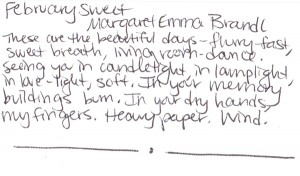 February Sweet
Margaret Emma Brandl
These are the beautiful days-flurry-fast,
sweet breath, living room-dance.
seeing you in candlelight, in lamplight,
in love-light, soft. In your memory
buildings burn. In your dry hands,
my fingers. Heavy paper. Wind.